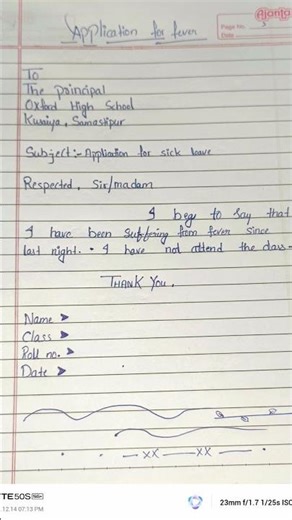 Application for fever
Ajanta
Page No. 3
Date
To
The principal
Oxford High School
Kusaiya, Samastipur
Subject:- Application for sick leave
Respected, Sir/madam
I begs to say that
I have been suffring from fever since
last night. I have not attend the class.
THANK YOU.
Name ➤
Class ➤
Roll no. ➤
Date ➤
— XX — XX —
TE 50S 5G
.12.14 07:13 PM
23mm f/1.7 1/25s ISO